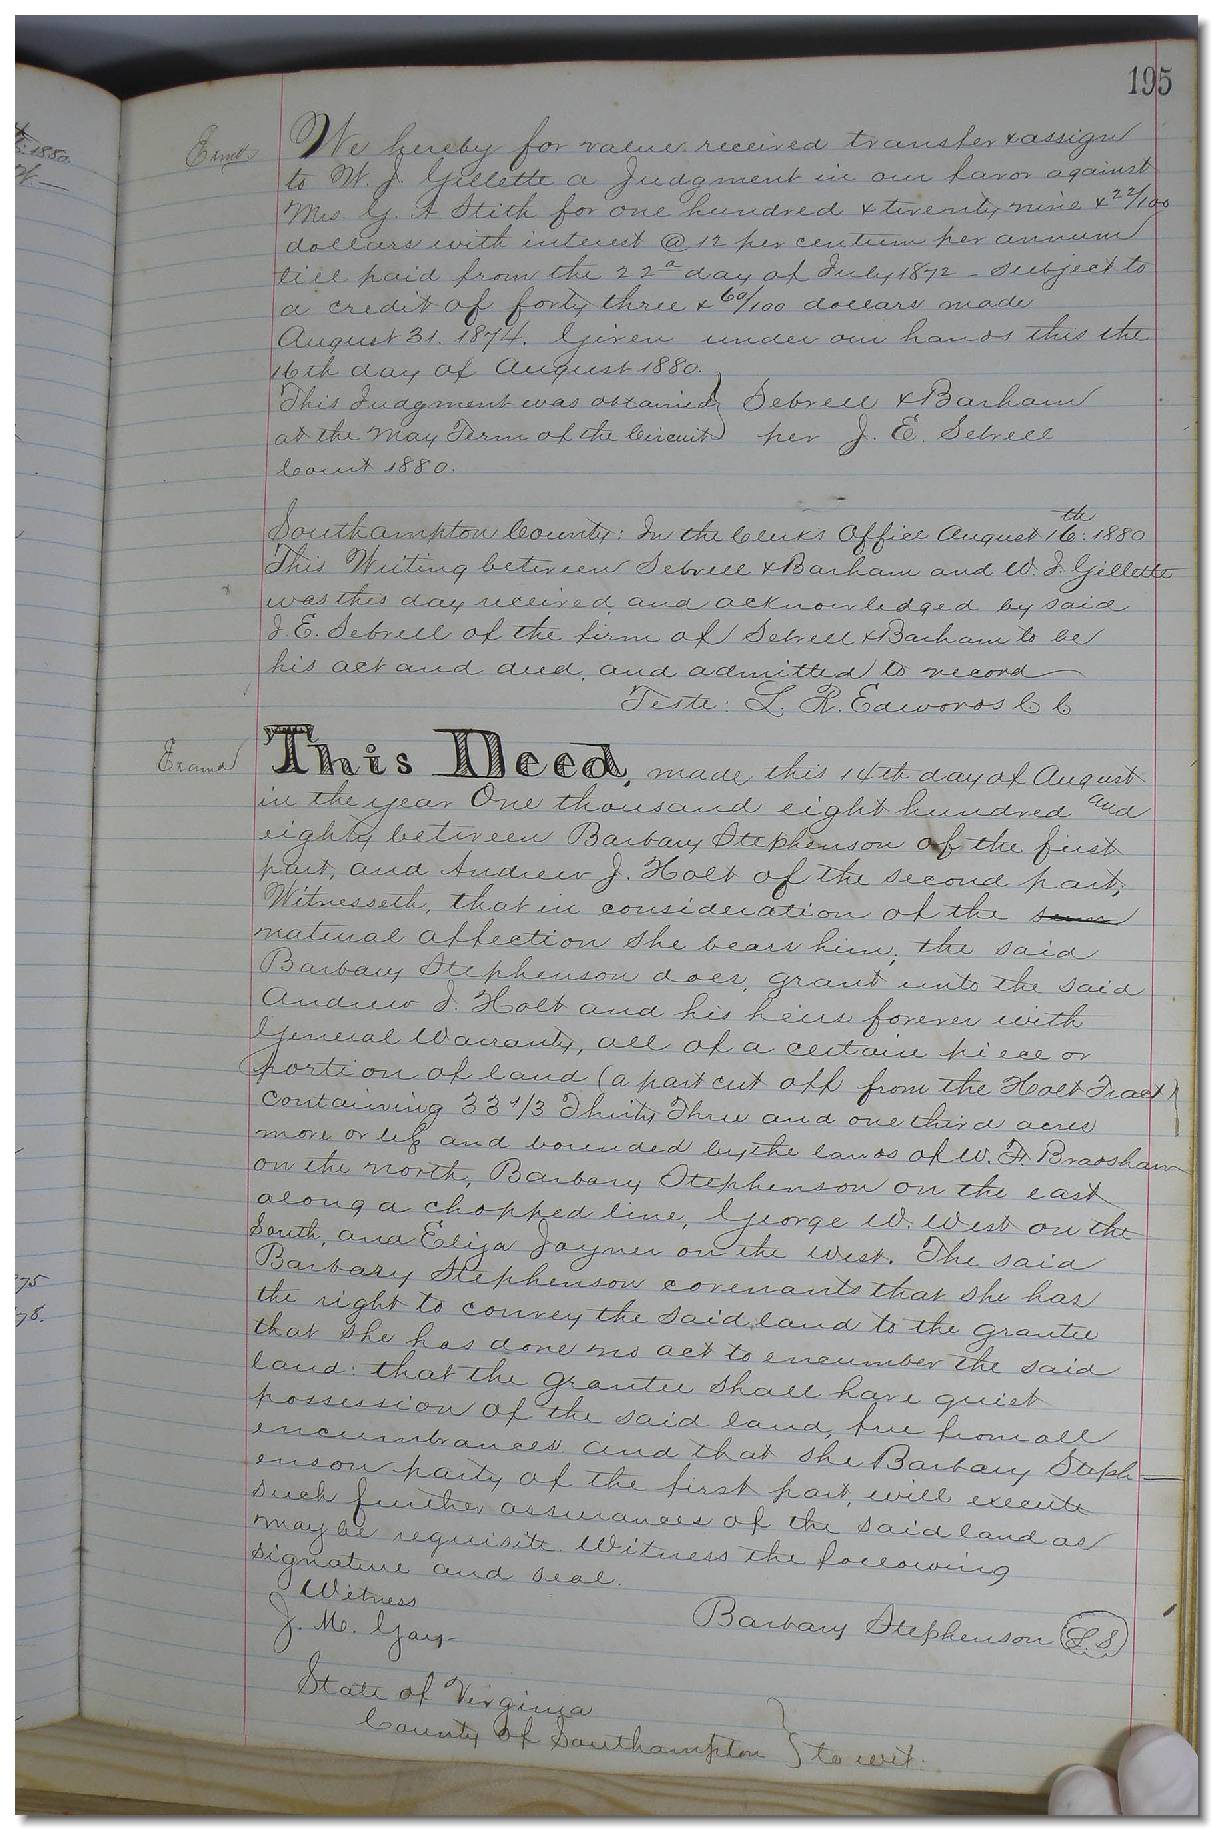 195
: 1880.
Exmd
We hereby for value received transfer & assign
to W. J. Gillette a Judgment in our favor against
Mrs. G. A Stith for one hundred & twenty nine & 22/100
dollars with interest @ 12 per centum per annum
till paid from the 22d day of July 1872 - subject to
a credit of forty three & 60/100 dollars made
August 31. 1874. Given under our hands this the
16th day of August 1880.
This Judgment was obtained } Sebrell & Barham
at the May Term of the Circuit } per J. E. Sebrell
Court 1880.
Southampton County: In the Clerks Office August 16th: 1880
This Writing between Sebrell & Barham and W. J. Gillette
was this day received, and acknowledged by said
J. E. Sebrell of the firm of Sebrell & Barham to be
his act and deed, and admitted to record
Teste: L. R. Edwards C. C
Examd
This Deed, made this 14th day of August
in the year One thousand eight hundred and
eighty between Barbary Stephenson of the first
part, and Andrew J. Holt of the second part,
Witnesseth, that in consideration of the
natural affection she bears him, the said
Barbary Stephenson does, grant unto the said
Andrew J. Holt and his heirs forever with
General Warranty, all of a certain piece or
portion of land (a part cut off from the Holt Tract)
containing 33 1/3 Thirty Three and one third acres
more or less and bounded by the lands of W. F. Bradshaw
on the north, Barbary Stephenson on the east
along a chopped line, George W. West on the
South, and Eliza Joyner on the west. The said
Barbary Stephenson covenants that she has
the right to convey the said land to the grantee
that she has done no act to encumber the said
land: that the grantee shall have quiet
possession of the said land, free from all
encumbrances and that she Barbary Steph-
enson party of the first part, will execute
such further assurances of the said land as
may be requisite. Witness the following
signature and seal.
Witness
J. M. Gay
Barbary Stephenson (L.S.)
State of Virginia
County of Southampton } to wit:
75
78.